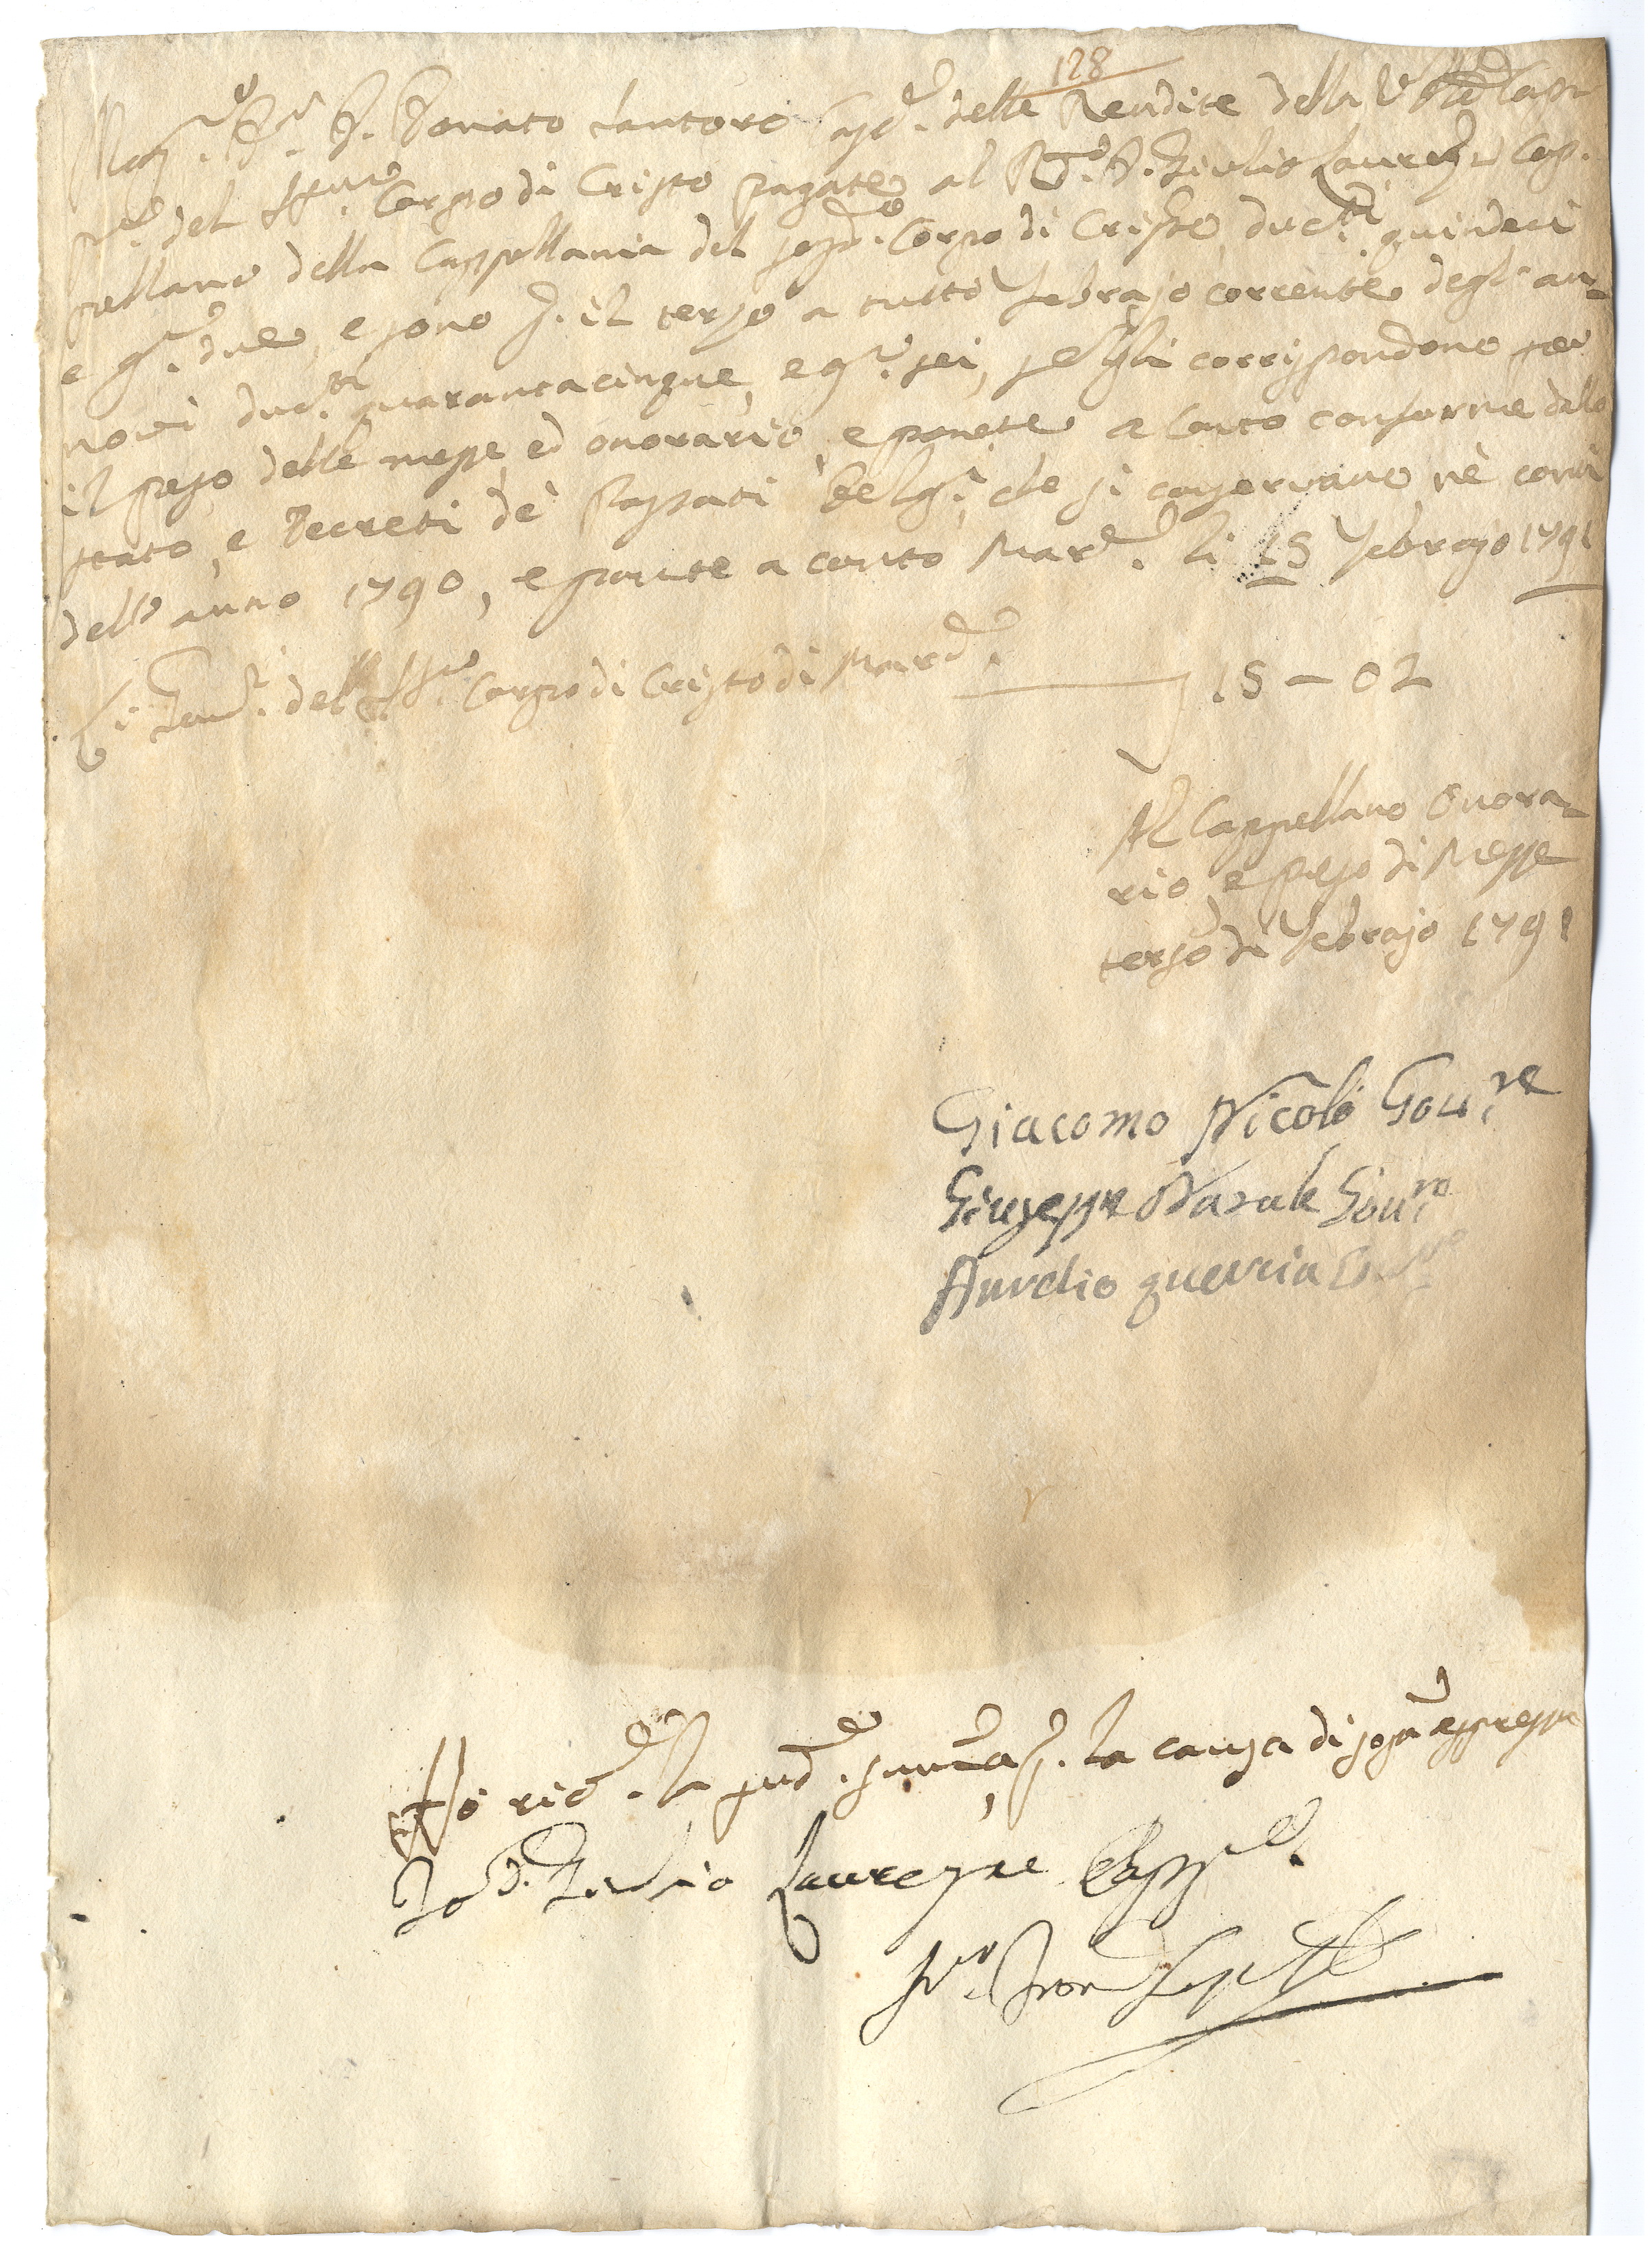 128
Mag.co S.r D. Donato Santoro Aff.e delle Rendite della V.le Cap-
p.a del SS.mo Corpo di Cristo pagate al R.do D. Giulio Laurenzj Cap-
pellano della Cappellania del sop.o Corpo di Cristo duc.ti quindeci
e g.a due, e sono p. il terzo a tutto Febrajo corrente degl'an-
novi duc.ti quarantacinque, e g.a sei, se gli corrispondono per
il peso delle messe, ed onorario, e ponete a conto conforme dallo
stato, e Decreti de' Passati che si conservano nè conti
dell'anno 1790, e ponete a conto Mar.d. li 15 Febrajo 1791
del SS.mo Corpo di Cristo di Mar.d.
15 - 02
Al Cappellano Onora-
rio, e peso di Messe
terzo di Febrajo 1791
Giacomo Nicolò Gov.re
Giuseppe Natale Gov.re
Aurelio guercia
Hò ric.o la sud.a summa p. la causa di sop.a espressa
Io D. Giulio Laurenzje Capp.o